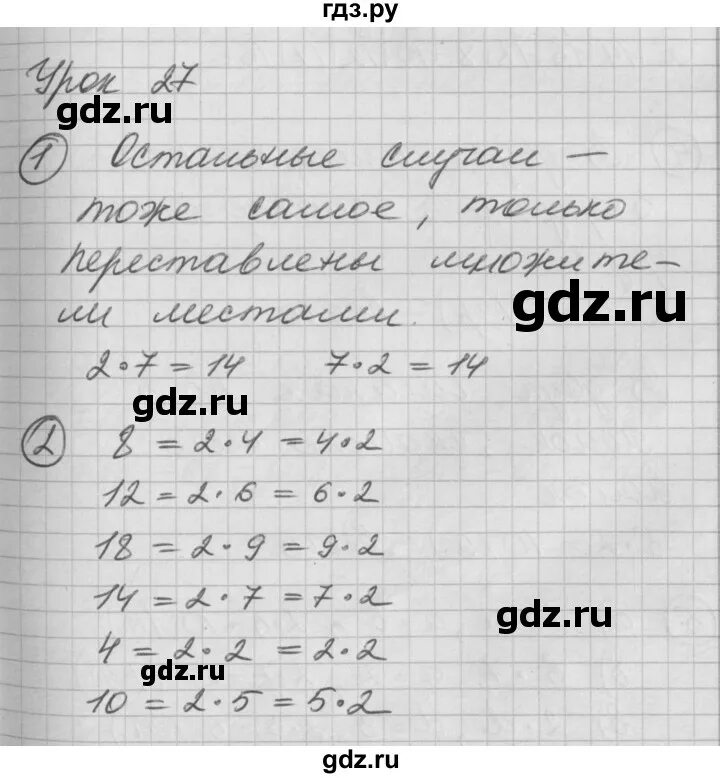 гдз.ру
Урок 27
gdz.ru
1 Остальные случаи –
тоже самое, только
переставлены множите-
ли местами.
gdz.ru
2·7 = 14 7·2 = 14
gdz.ru
2 8 = 2·4 = 4·2
12 = 2·6 = 6·2
18 = 2·9 = 9·2
14 = 2·7 = 7·2
gdz.ru
4 = 2·2 = 2·2
gdz.ru
10 = 2·5 = 5·2
gdz.ru